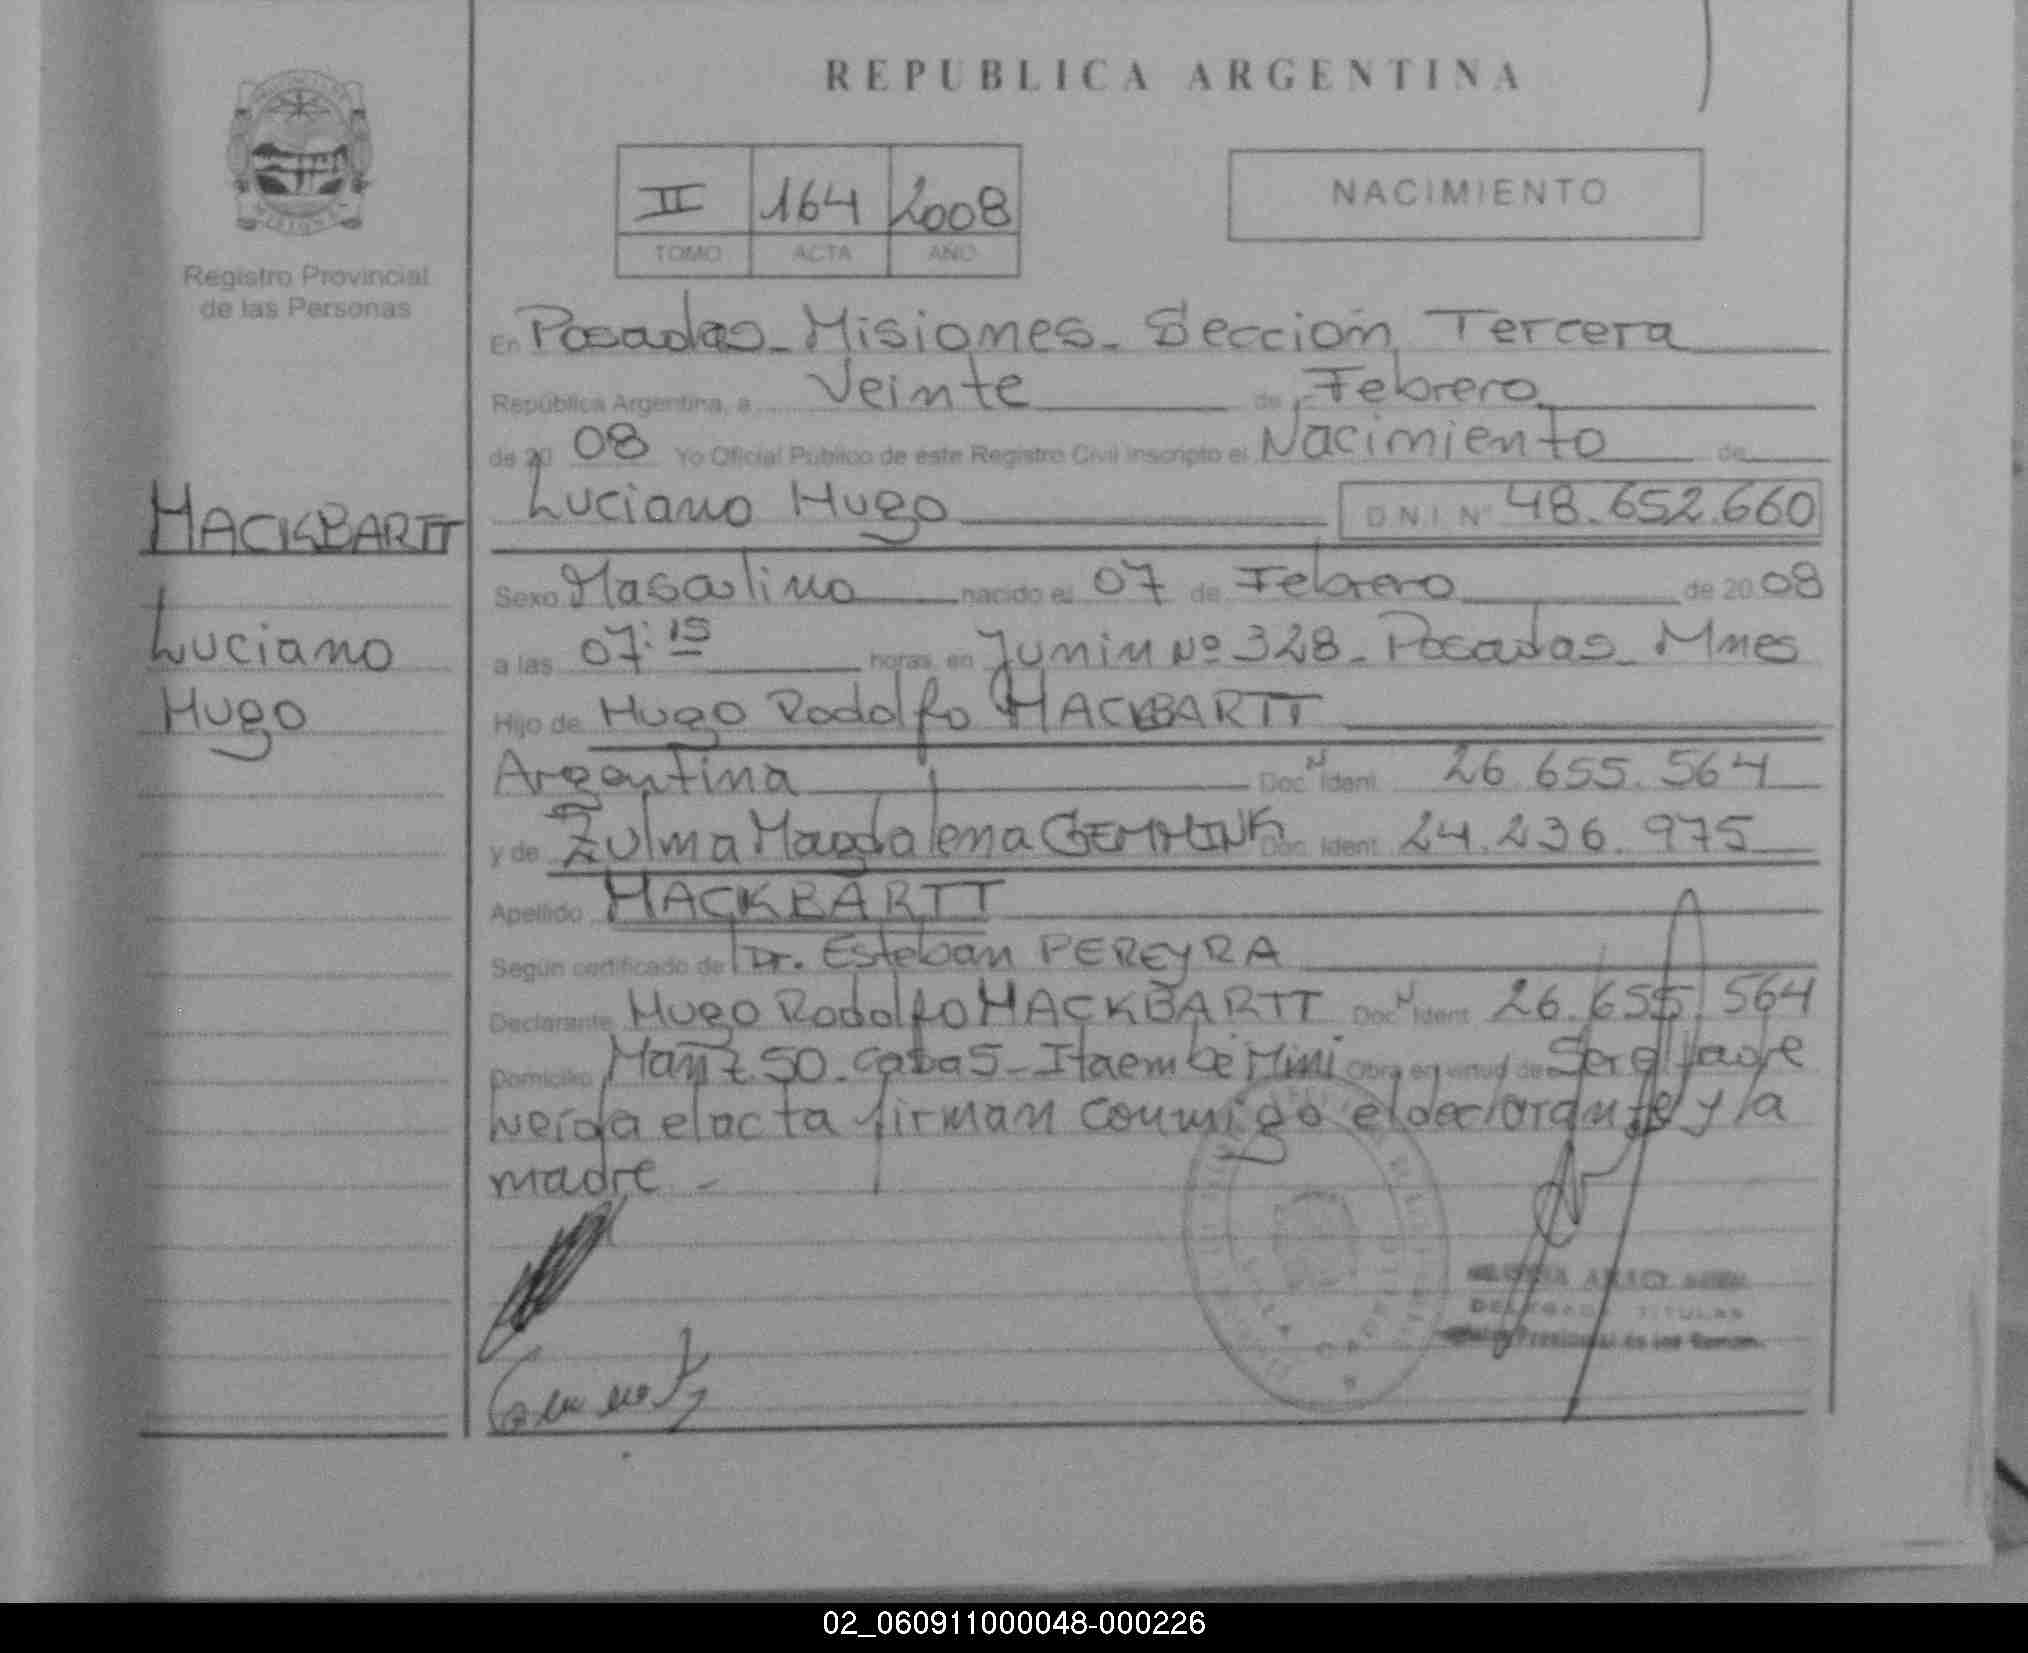 REPUBLICA ARGENTINA
II 164 2008
TOMO ACTA AÑO
NACIMIENTO
Registro Provincial
de las Personas
En Posadas - Misiones - Sección Tercera
República Argentina, a Veinte de Febrero
de 20 08 Yo Oficial Público de este Registro Civil inscripto el Nacimiento de
Luciano Hugo D.N.I. Nº 48.652.660
HACKBARTT
Luciano
Hugo
Sexo Masculino nacido el 07 de Febrero de 20 08
a las 07:15 horas, en Junin Nº 328 - Posadas - Mnes
Hijo de Hugo Rodolfo HACKBARTT
Argentina Doc. N Ident. 26.655.564
y de Zulma Magdalena GEMMINK Doc. Ident. 24.236.975
Apellido HACKBARTT
Según certificado de Dr. Esteban PEREYRA
Declarante Hugo Rodolfo HACKBARTT Doc. N Ident. 26.655.564
Domicilio Manz. 50 - Casa 5 - Itaembé Mini Obra en virtud de Ser el Padre
leída el acta firman conmigo el declarante y la
madre -
DELEGADA TITULAR
02_060911000048-000226